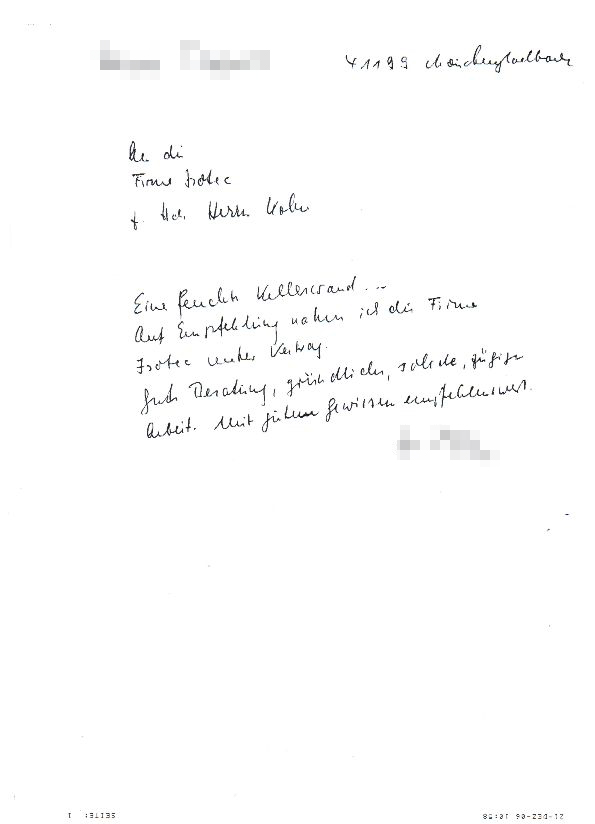 41199 Mönchengladbach
An die
Firma Isotec
z. Hd. Herrn
Eine feuchte Kellerwand...
Auf Empfehlung nahm ich die Firma
Isotec unter Vertrag.
Gute Beratung, gründliche, solide, zügige
Arbeit. Mit gutem Gewissen empfehlenswert.
SEITE: 1
21-DEZ-06 10:58